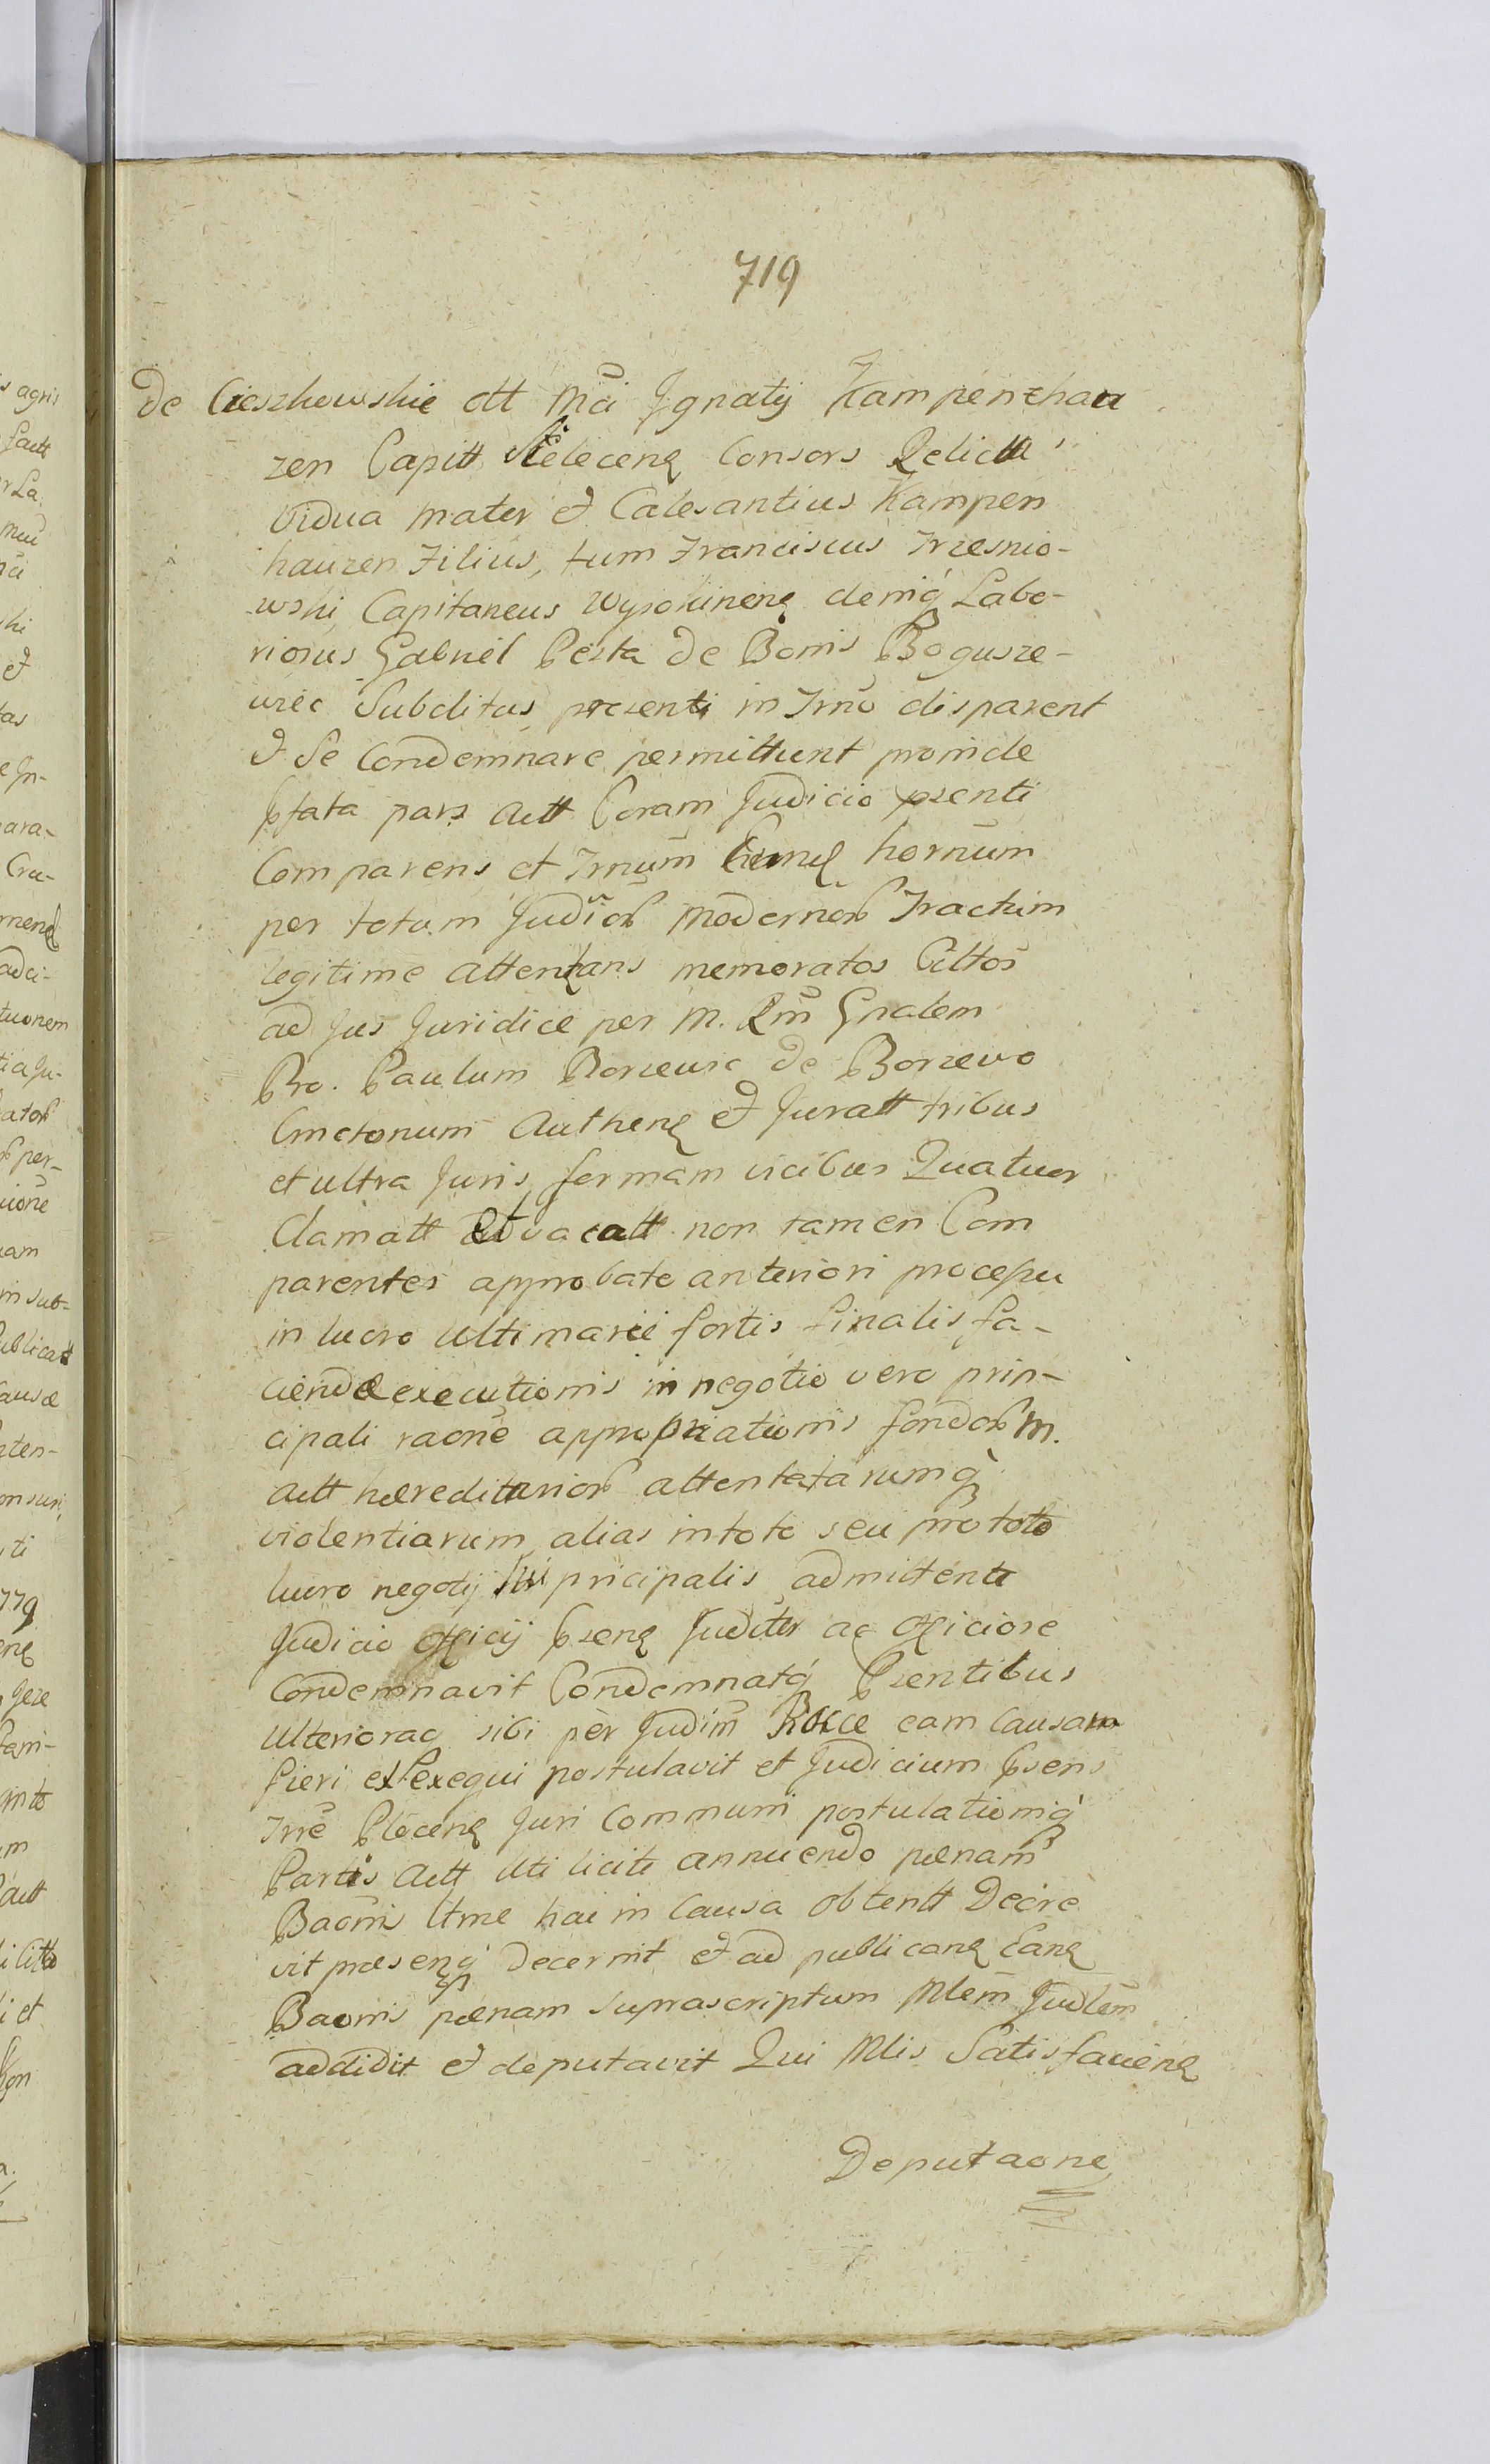 719
De Cieszkowskie ott Mci Jgnatij Kampenchau
zen Capitt Steleceng Consors Relicta
vidua Mater et Calesantius Kampen
hauzen Filius, tum Franciscus Trzesnio-
wski Capitaneus Wysokineng deniq Labo-
riosus Gabriel Pesta de Bonis Bogusze-
wiec Subditus presenti in Trno disparent
et Se Condemnare permittunt proinde
pfata pars Actt Coram Judicio psenti
Comparens et Trnum hornum
per totum Judior Modernor Tractum
legitime attentans memoratos Cittos
ad Jus Juridice per M. Rm Gnalem
Pro. Paulum Borzewic de Borzewo
Cmctonum Autheng et Juratt tribus
et ultra Juris formam vicibus Quatuor
Clamatt Advocatt non tamen Com
parentes approbato anteriori processu
in lucro Ultimarie fortis finalis fa-
ciendæ executionis in negotio vero prin-
cipali raone appropriationis fondor M.
Actt hæreditarior attentatarumq
violentiarum alias in toto seu pro toto
lucro negotij sui pricipalis admittente
Judicio Officij pseng Juditer ac Officiose
Condemnavit Condemnatq Psentibus
Ulteriorac sibi per Judim hocce eam Causam
fieri et exequi postulavit et Judicium psens
Trre Ploceng Juri Communi postulationiq
Partis Actt Uti licite annuendo pænam
Baonis Utme hac in Causa obtentt Decre
vit præsenq Decernit et ad publicang Eang
Baonis pænam suprascriptum Mlem Judlem
addidit et deputavit Qui Mlis Satisfacieng
Deputaone